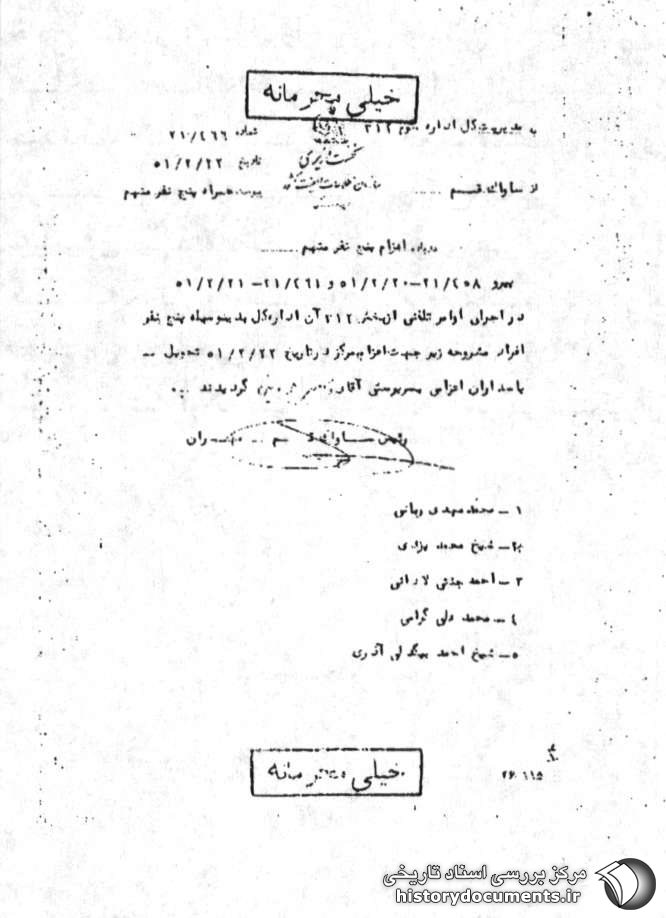 خیلی محرمانه
به مدیریت کل اداره سوم ۳۱۲
شماره ۲۱/۴۶۶
نخست وزیری
تاریخ ۵۱/۲/۲۲
سازمان اطلاعات و امنیت کشور
از ساواک قم
پیوست همراه پنج نفر متهم
درباره اعزام پنج نفر متهم
پیرو ۲۱/۴۵۸-۵۱/۲/۲۰ و ۲۱/۴۶۱-۵۱/۲/۲۱
در اجرای اوامر تلفنی از بخش ۳۱۲ آن اداره کل بدینوسیله پنج نفر
افراد مشروحه زیر جهت اعزام بمرکز در تاریخ ۵۱/۲/۲۲ تحویل
پاسداران اعزامی بسرپرستی آقای گردیدند
رئیس ساواک قم - مهران
۱ - محمد مهدی ربانی
۲ - شیخ محمد یزدی
۳ - احمد جنتی لادانی
۴ - محمد علی گرامی
۵ - شیخ احمد بیگدلی آذری
خیلی محرمانه
مرکز بررسی اسناد تاریخی
historydocuments.ir